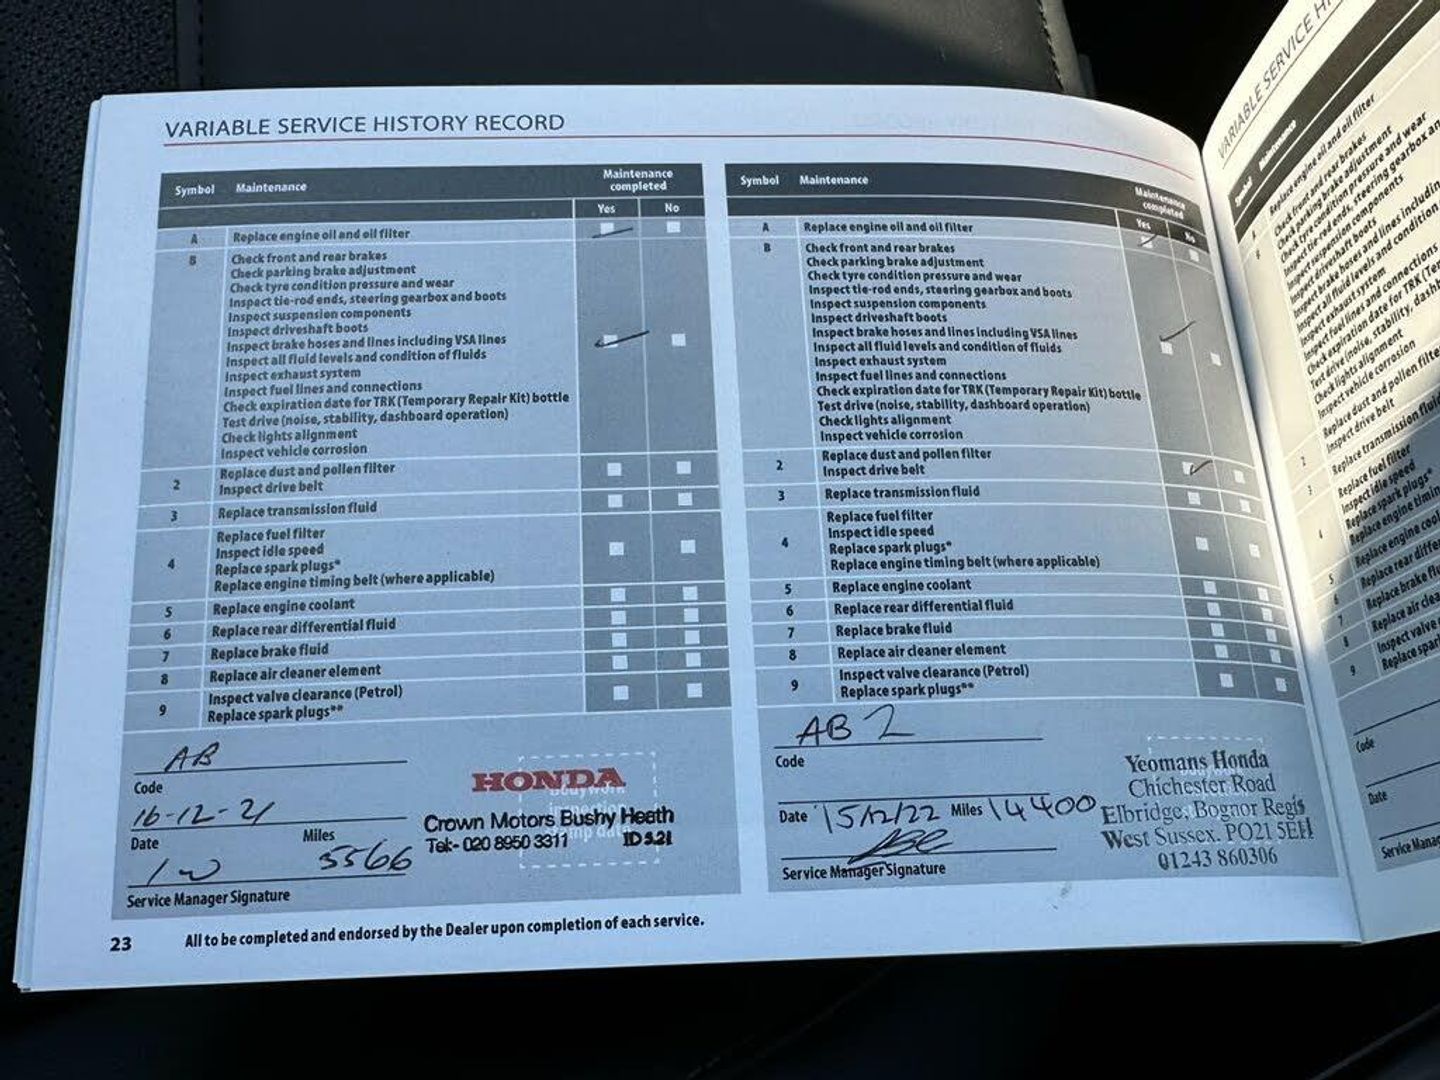 VARIABLE SERVICE HISTORY RECORD
Symbol Maintenance Maintenance completed
Yes No
A Replace engine oil and oil filter
B Check front and rear brakes
Check parking brake adjustment
Check tyre condition pressure and wear
Inspect tie-rod ends, steering gearbox and boots
Inspect suspension components
Inspect driveshaft boots
Inspect brake hoses and lines including VSA lines
Inspect all fluid levels and condition of fluids
Inspect exhaust system
Inspect fuel lines and connections
Check expiration date for TRK (Temporary Repair Kit) bottle
Test drive (noise, stability, dashboard operation)
Check lights alignment
Inspect vehicle corrosion
2 Replace dust and pollen filter
Inspect drive belt
3 Replace transmission fluid
4 Replace fuel filter
Inspect idle speed
Replace spark plugs*
Replace engine timing belt (where applicable)
5 Replace engine coolant
6 Replace rear differential fluid
7 Replace brake fluid
8 Replace air cleaner element
9 Inspect valve clearance (Petrol)
Replace spark plugs**
AB
Code
16-12-21
Date Miles
5566
Service Manager Signature
HONDA
Crown Motors Bushy Heath
Tel:- 020 8950 3311 ID 5.21
Symbol Maintenance Maintenance completed
Yes No
A Replace engine oil and oil filter
B Check front and rear brakes
Check parking brake adjustment
Check tyre condition pressure and wear
Inspect tie-rod ends, steering gearbox and boots
Inspect suspension components
Inspect driveshaft boots
Inspect brake hoses and lines including VSA lines
Inspect all fluid levels and condition of fluids
Inspect exhaust system
Inspect fuel lines and connections
Check expiration date for TRK (Temporary Repair Kit) bottle
Test drive (noise, stability, dashboard operation)
Check lights alignment
Inspect vehicle corrosion
2 Replace dust and pollen filter
Inspect drive belt
3 Replace transmission fluid
4 Replace fuel filter
Inspect idle speed
Replace spark plugs*
Replace engine timing belt (where applicable)
5 Replace engine coolant
6 Replace rear differential fluid
7 Replace brake fluid
8 Replace air cleaner element
9 Inspect valve clearance (Petrol)
Replace spark plugs**
AB 2
Code
Date 15/12/22 Miles 14400
Service Manager Signature
Yeomans Honda
Chichester Road
Elbridge, Bognor Regis
West Sussex. PO21 5EH
01243 860306
23 All to be completed and endorsed by the Dealer upon completion of each service.
VARIABLE SERVICE
Symbol Maintenance
Replace engine oil and oil filter
Check front and rear brakes
Check parking brake adjustment
Check tyre condition pressure and wear
Inspect tie rod ends, steering gearbox
Inspect suspension components
Inspect driveshaft boots
Inspect brake hoses and lines including
Inspect all fluid levels and condition
Inspect exhaust system
Inspect fuel lines and connections
Check expiration date for TRK
Test drive (noise, stability,
Check lights alignment
Inspect vehicle corrosion
Replace dust and pollen
Inspect drive belt
Replace transmission
Replace fuel filter
Inspect idle speed
Replace spark plugs*
Replace engine
Replace engine
Replace rear
Replace brake
Replace air
9 Inspect valve
Replace
Code
Date
Service